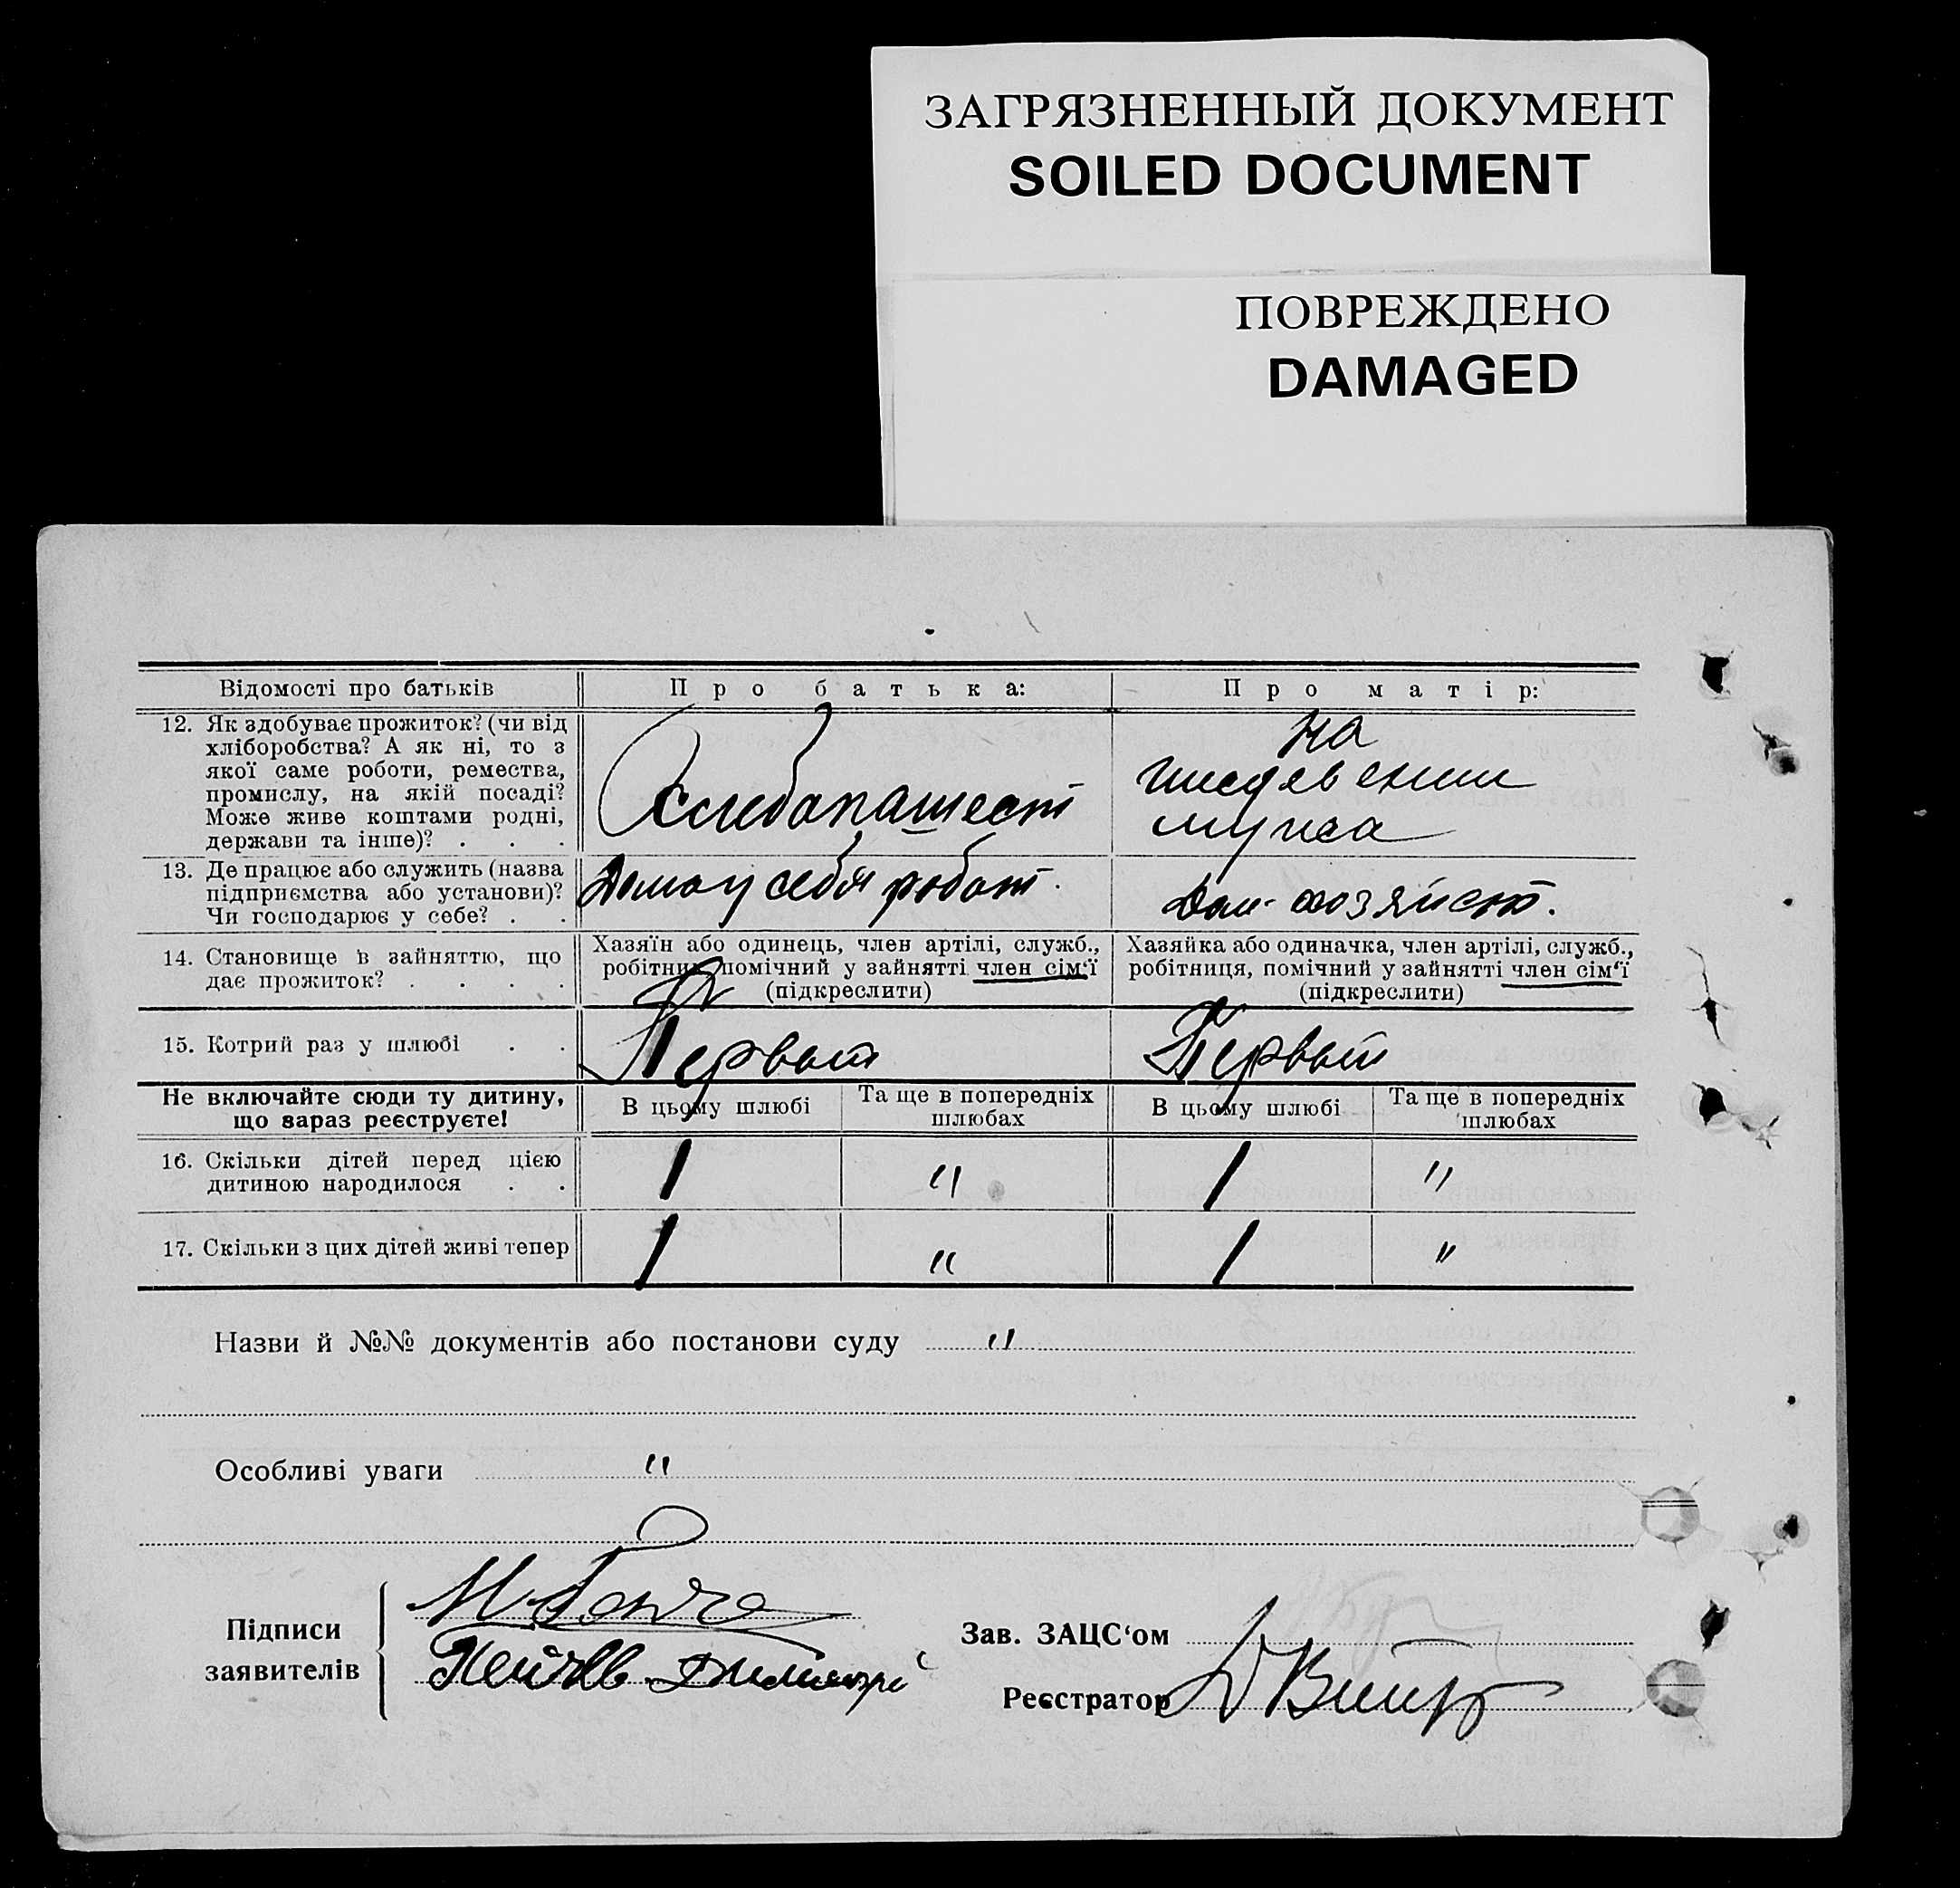 ЗАГРЯЗНЕННЫЙ ДОКУМЕНТ
SOILED DOCUMENT
ПОВРЕЖДЕНО
DAMAGED
Відомості про батьків
Про батька:
Про матір:
12. Як здобуває прожиток? (чи від
хліборобства? А як ні, то з
якої саме роботи, ремества,
промислу, на якій посаді?
Може живе коштами родні,
держави та інше)? . . .
на
мужа
13. Де працює або служить (назва
підприємства або установи)?
Чи господарює у себе? . .
Дома у себя работ.
Дом. хозяйств.
14. Становище в зайняттю, що
дає прожиток? . . . .
Хазяїн або одинець, член артілі, служб.,
робітник, помічний у зайнятті член сім'ї
(підкреслити)
Хазяйка або одиначка, член артілі, служб.,
робітниця, помічний у зайнятті член сім'ї
(підкреслити)
15. Котрий раз у шлюбі . .
Первый
Первый
Не включайте сюди ту дитину,
що зараз реєструєте!
В цьому шлюбі
Та ще в попередніх
шлюбах
В цьому шлюбі
Та ще в попередніх
шлюбах
16. Скільки дітей перед цією
дитиною народилося . .
1 " 1 "
17. Скільки з цих дітей живі тепер
1 " 1 "
Назви й №№ документів або постанови суду "
Особливі уваги "
Підписи
заявителів
Зав. ЗАЦС‘ом
Реєстратор